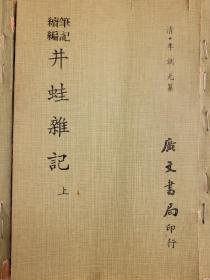 清·李調元纂
筆記
續編
井蛙雜記
上
廣文書局印行